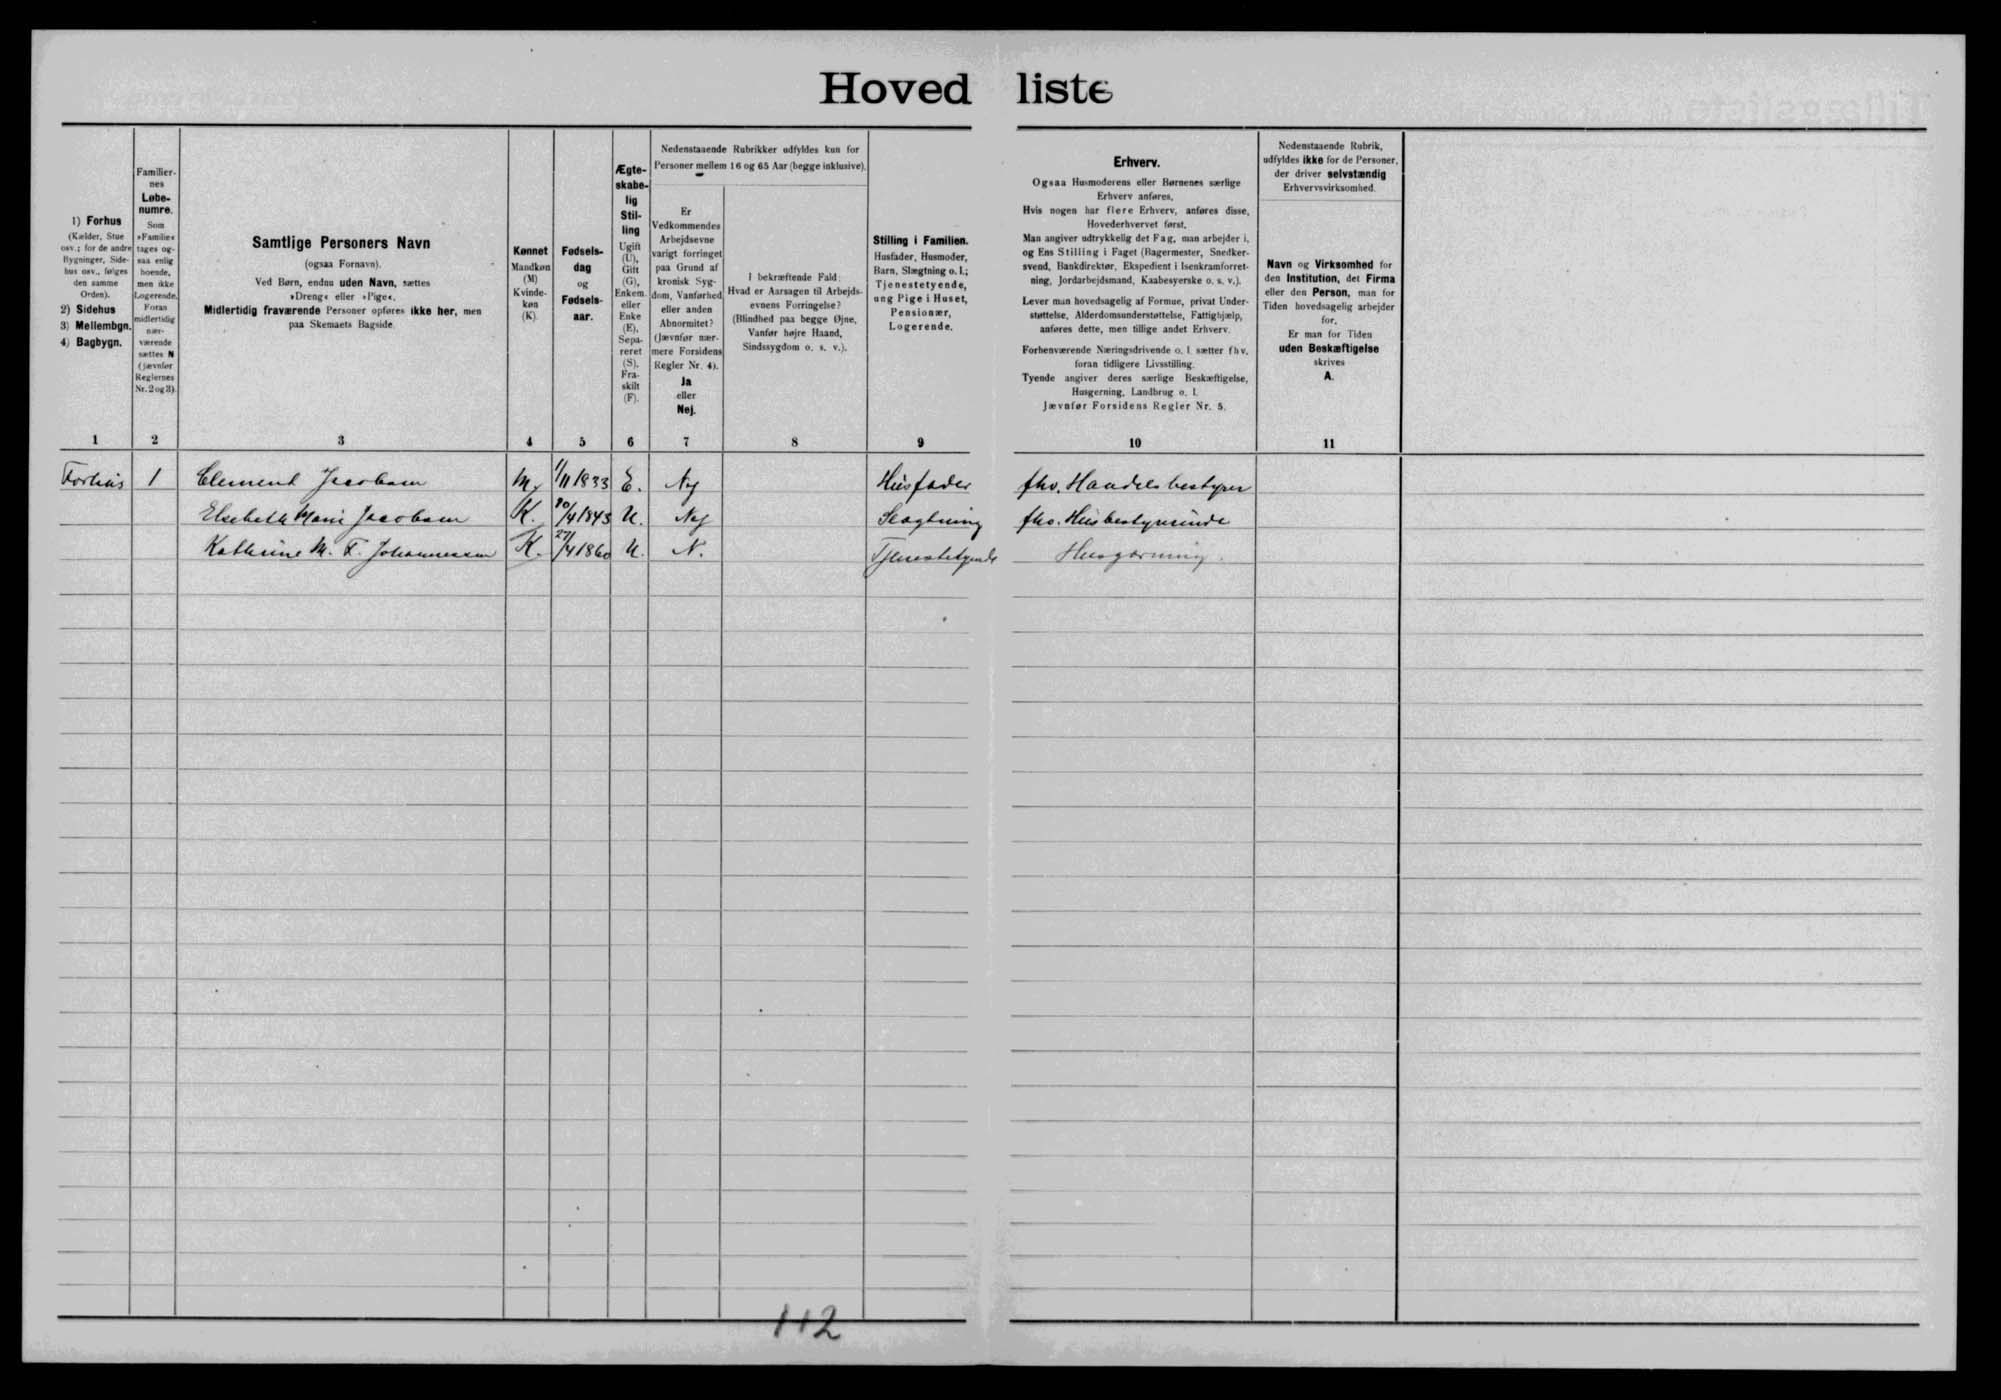 Hovedliste
1) Forhus
(Kælder, Stue
osv.; for de andre
Bygninger, Side-
hus osv., følges
den samme
Orden).
2) Sidehus
3) Mellembgn.
4) Bagbygn.
1
Familier-
nes
Løbe-
numre.
Som
»Familie«
tages og-
saa enlig
boende,
men ikke
Logerende.
Foran
midlertidig
nær-
værende
sættes N
(jævnfør
Reglernes
Nr. 2 og 3).
2
Samtlige Personers Navn
(ogsaa Fornavn).
Ved Børn, endnu uden Navn, sættes
»Dreng« eller »Pige«.
Midlertidig fraværende Personer opføres ikke her, men
paa Skemaets Bagside.
3
Kønnet
Mandkøn
(M)
Kvinde-
køn
(K).
4
Fødsels-
dag
og
Fødsels-
aar.
5
Ægte-
skabe-
lig
Stil-
ling
Ugift
(U),
Gift
(G),
Enkem.
eller
Enke
(E),
Sepa-
reret
(S),
Fra-
skilt
(F).
6
Nedenstaaende Rubrikker udfyldes kun for
Personer mellem 16 og 65 Aar (begge inklusive).
Er
Vedkommendes
Arbejdsevne
varigt forringet
paa Grund af
kronisk Syg-
dom, Vanførhed
eller anden
Abnormitet?
(Jævnfør nær-
mere Forsidens
Regler Nr. 4).
Ja
eller
Nej.
7
I bekræftende Fald:
Hvad er Aarsagen til Arbejds-
evnens Forringelse?
(Blindhed paa begge Øjne,
Vanfør højre Haand,
Sindssygdom o. s. v.).
8
Stilling i Familien.
Husfader, Husmoder,
Barn, Slægtning o. l.;
Tjenestetyende,
ung Pige i Huset,
Pensionær,
Logerende.
9
Erhverv.
Ogsaa Husmoderens eller Børnenes særlige
Erhverv anføres.
Hvis nogen har flere Erhverv, anføres disse,
Hovederhvervet først.
Man angiver udtrykkelig det Fag, man arbejder i,
og Ens Stilling i Faget (Bagermester, Snedker-
svend, Bankdirektør, Ekspedient i Isenkramforret-
ning, Jordarbejdsmand, Kaabesyerske o. s. v.).
Lever man hovedsagelig af Formue, privat Under-
støttelse, Alderdomsunderstøttelse, Fattighjælp,
anføres dette, men tillige andet Erhverv.
Forhenværende Næringsdrivende o. l. sætter fhv.
foran tidligere Livsstilling.
Tyende angiver deres særlige Beskæftigelse,
Husgerning, Landbrug o. l.
Jævnfør Forsidens Regler Nr. 5.
10
Nedenstaaende Rubrik,
udfyldes ikke for de Personer,
der driver selvstændig
Erhvervsvirksomhed.
Navn og Virksomhed for
den Institution, det Firma
eller den Person, man for
Tiden hovedsagelig arbejder
for.
Er man for Tiden
uden Beskæftigelse
skrives
A.
11
Forhus 1 Clement Jacobsen M. 1/11 1833 E. Nej Husfader fhv. Handelsbestyrer
Elsebeth Marie Jacobsen K. 20/4 1843 U. Nej Slægtning fhv. Husbestyrerinde
Kathrine M. F. Johannessen K. 27/4 1860 U. N. Tjenestetyende Husgerning.
112